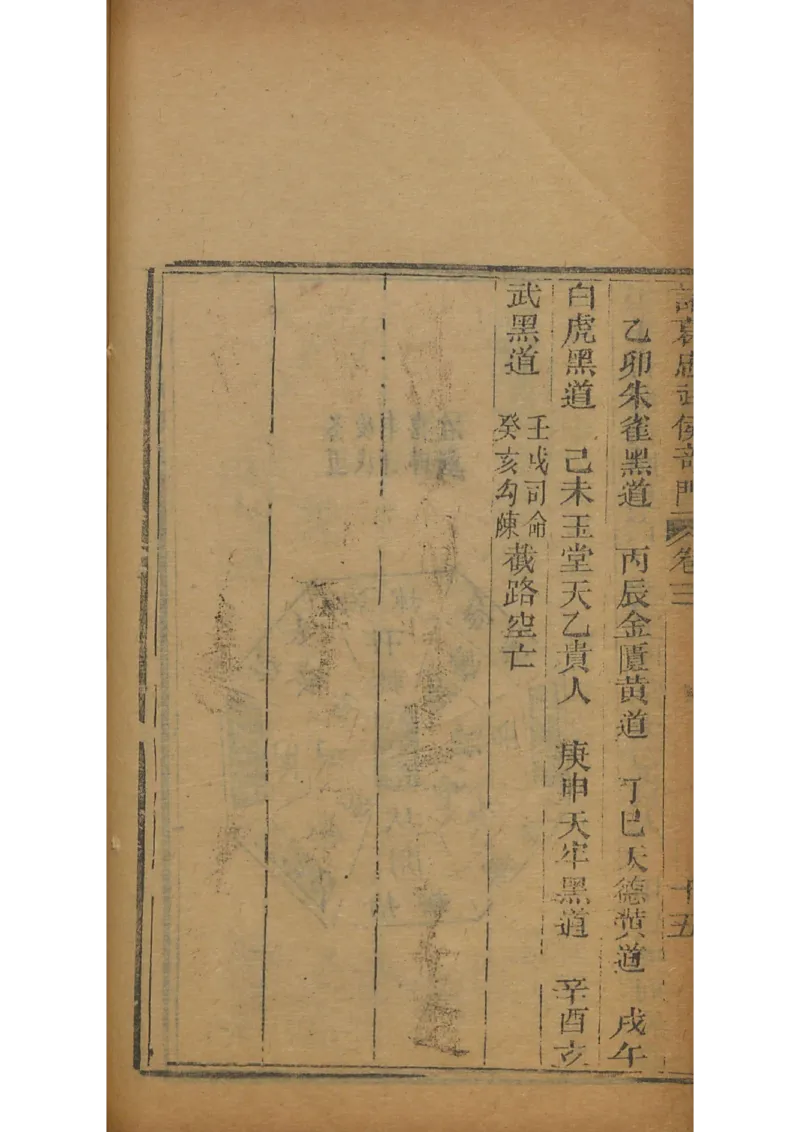 諸葛忠武侯奇門 卷三 十五
乙卯朱雀黑道 丙辰金匱黄道 丁巳天德黄道 戊午
白虎黑道 己未玉堂天乙貴人 庚申天牢黑道 辛酉玄
武黑道 壬戌司命 癸亥勾陳 截路空亡